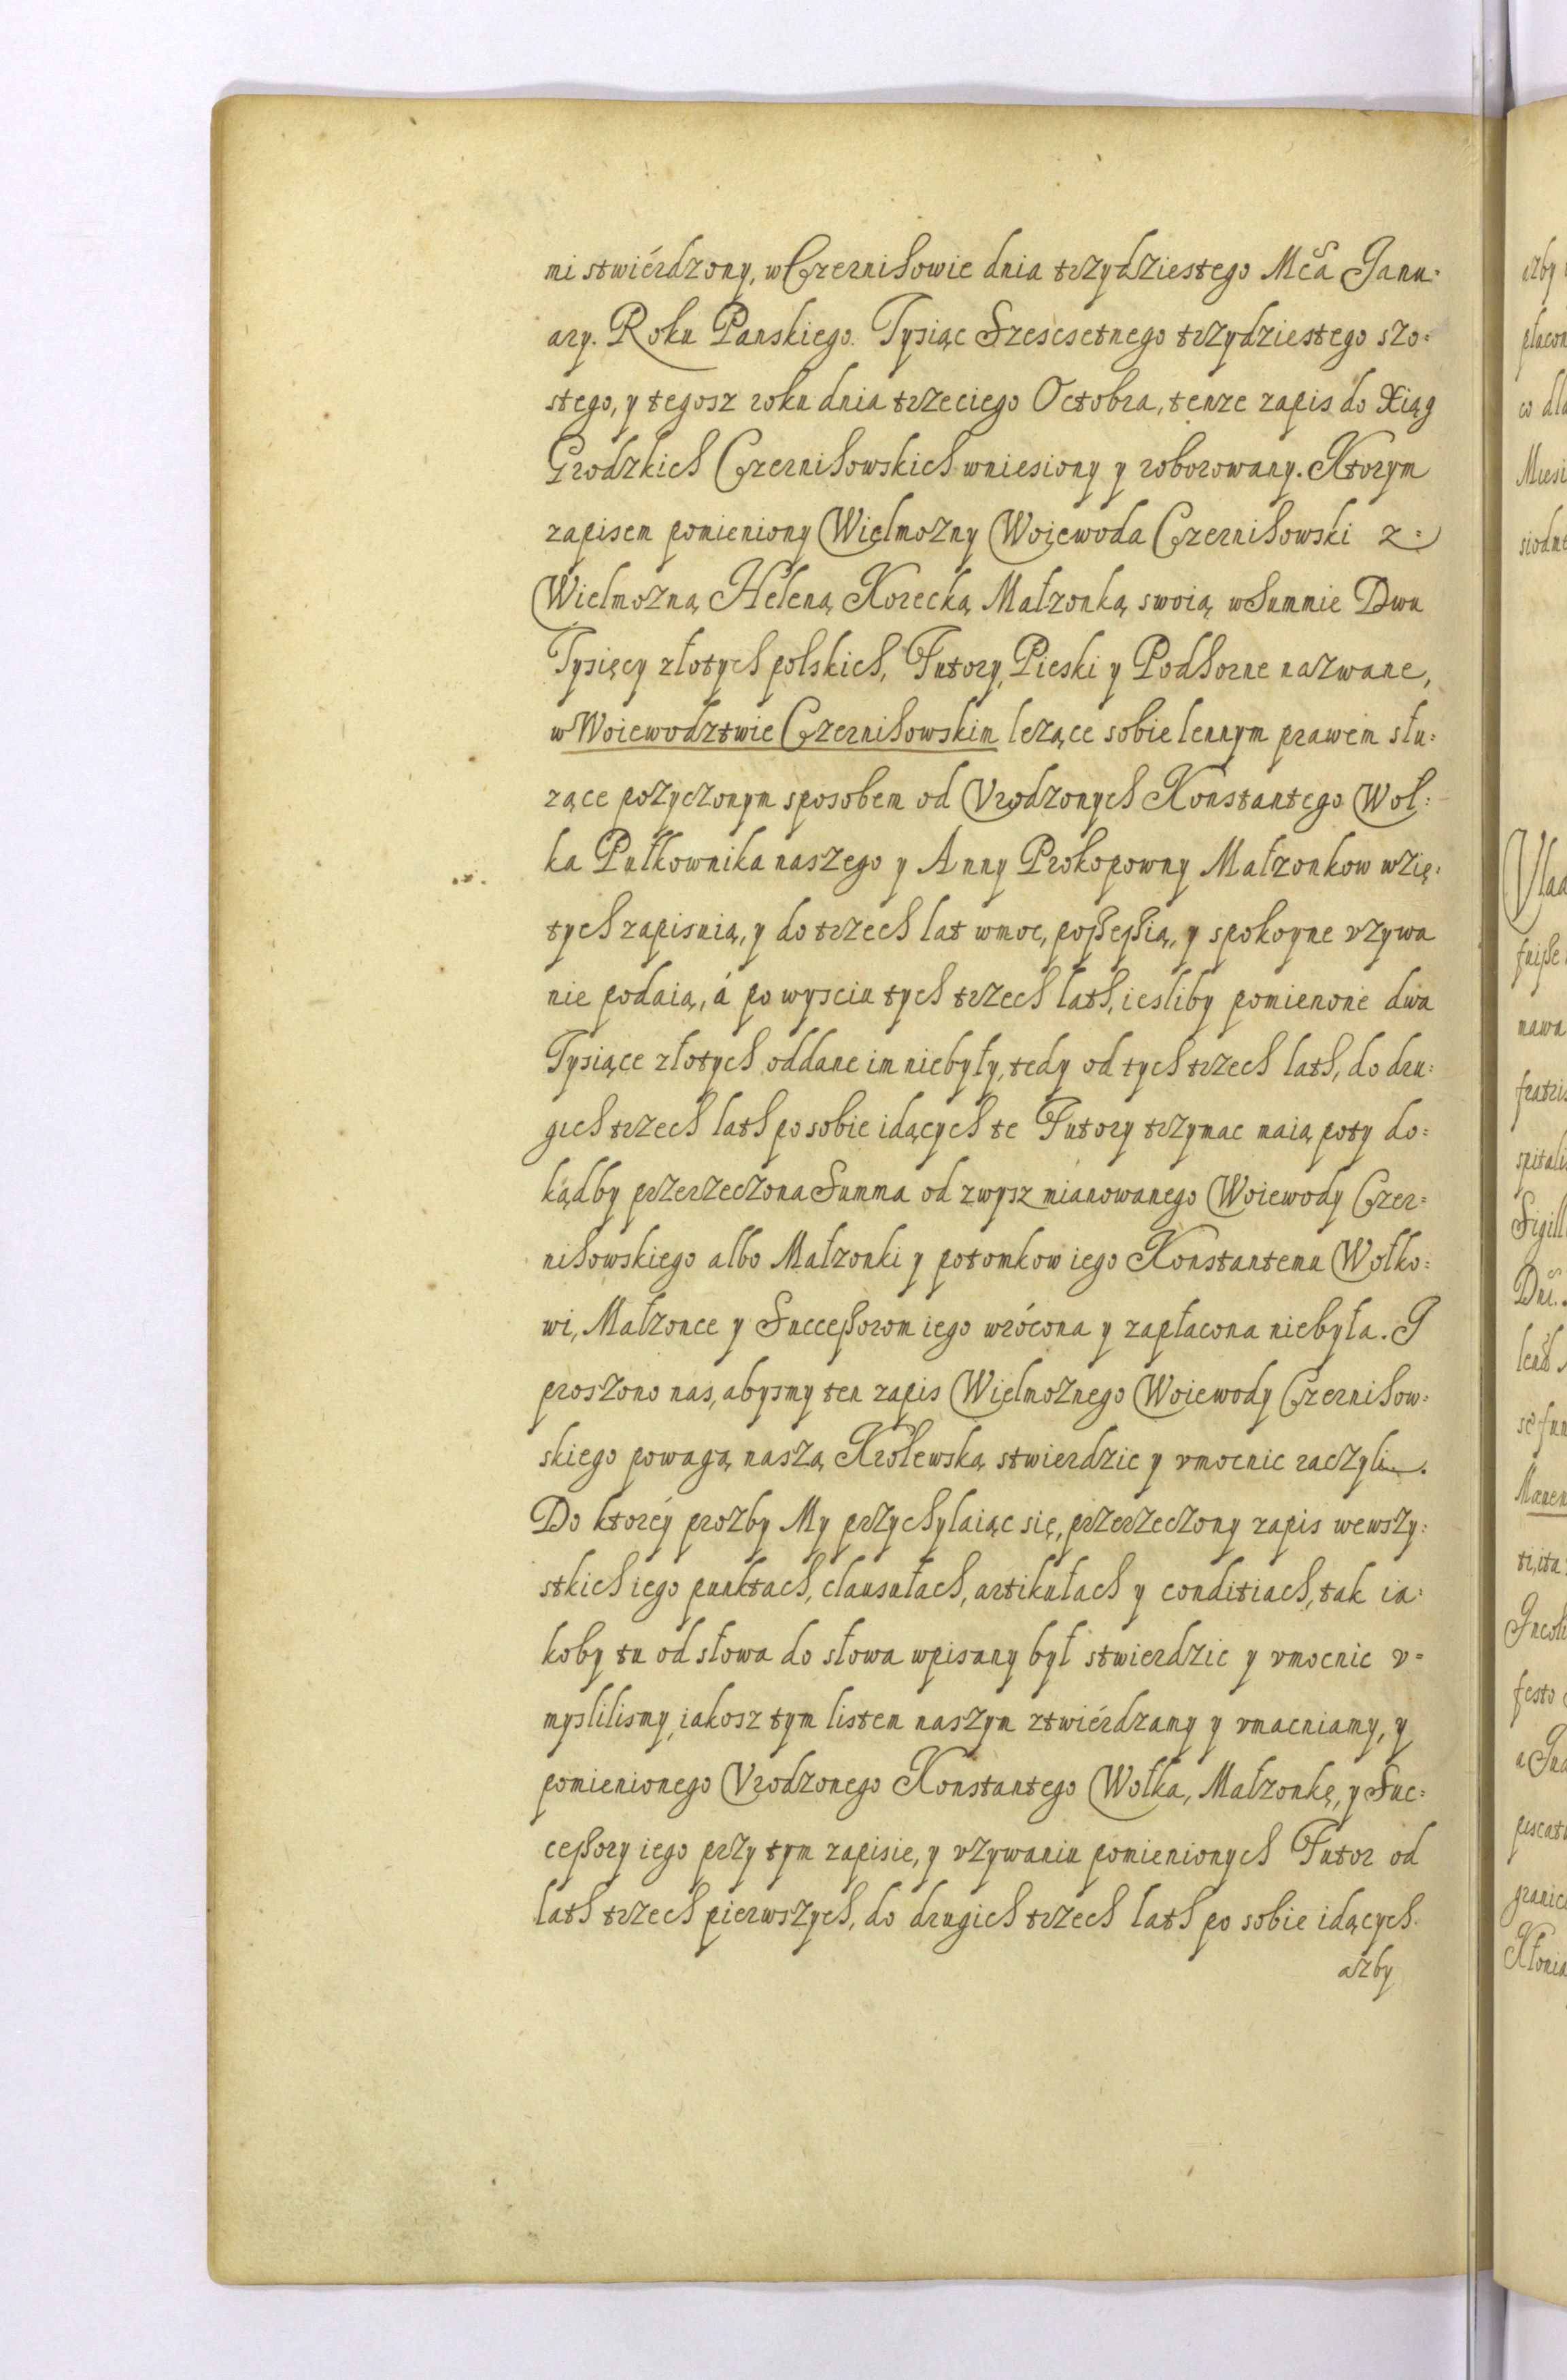 mi stwiérdzony, w Czernihowie dnia trzydziestego Mca Janu=
ary. Roku Panskiego. Tysiąc Szescsetnego trzydziestego szo=
stego, y tegosz roku dnia trzeciego Octobra, tenze zapis do Xiąg
Grodzkich Czernihowskich wniesiony y roborowany. Ktorym
zapisem pomieniony Wielmozny Woiewoda Czernihowski z=
Wielmozną Heleną Korecką Małzonką swoią w Summie Dwu
Tysięcy złotych polskich, Futory, Pieski y Podhorne nazwane,
w Woiewodztwie Czernihowskim lezące sobie lennym prawem słu=
zące pozyczonym sposobem od Vrodzonych Konstantego Woł=
ka Pułkownika naszego y Anny Prokopowny Małzonkow wzię=
tych zapisuią, y do trzech lat w moc, possessią, y spokoyne vzywa
nie podaią, á po wysciu tych trzech lath, iesliby pomienone dwa
Tysiące złotych oddane im niebyły, tedy od tych trzech lath, do dru=
gich trzech lath po sobie idących te Futory trzymac maią poty do=
kądby przerzeczona Summa od zwysz mianowanego Woiewody Czer=
nihowskiego albo Małzonki y potomkow iego Konstantemu Wołko=
wi, Małzonce y Successorom iego wrócona y zapłacona niebyła. J
proszono nas, abysmy ten zapis Wielmoznego Woiewody Czernihow=
skiego powagą naszą Krolewską stwierdzic y vmocnic raczyli.
Do ktoréy prozby My przychylaiąc się, przerzeczony zapis we wszy=
stkich iego punktach, clausułach, artikułach y conditiach, tak ia=
koby tu od słowa do słowa wpisany był stwierdzic y vmocnic v=
myslilismy, iakosz tym listem naszym ztwiérdzamy y vmacniamy, y
pomienionego Vrodzonego Konstantego Wołka, Małzonkę, y Suc=
cessory iego przy tym zapisie, y vzywaniu pomienionych Futor od
lath trzech pierwszych, do drugich trzech lath po sobie idących.
azby